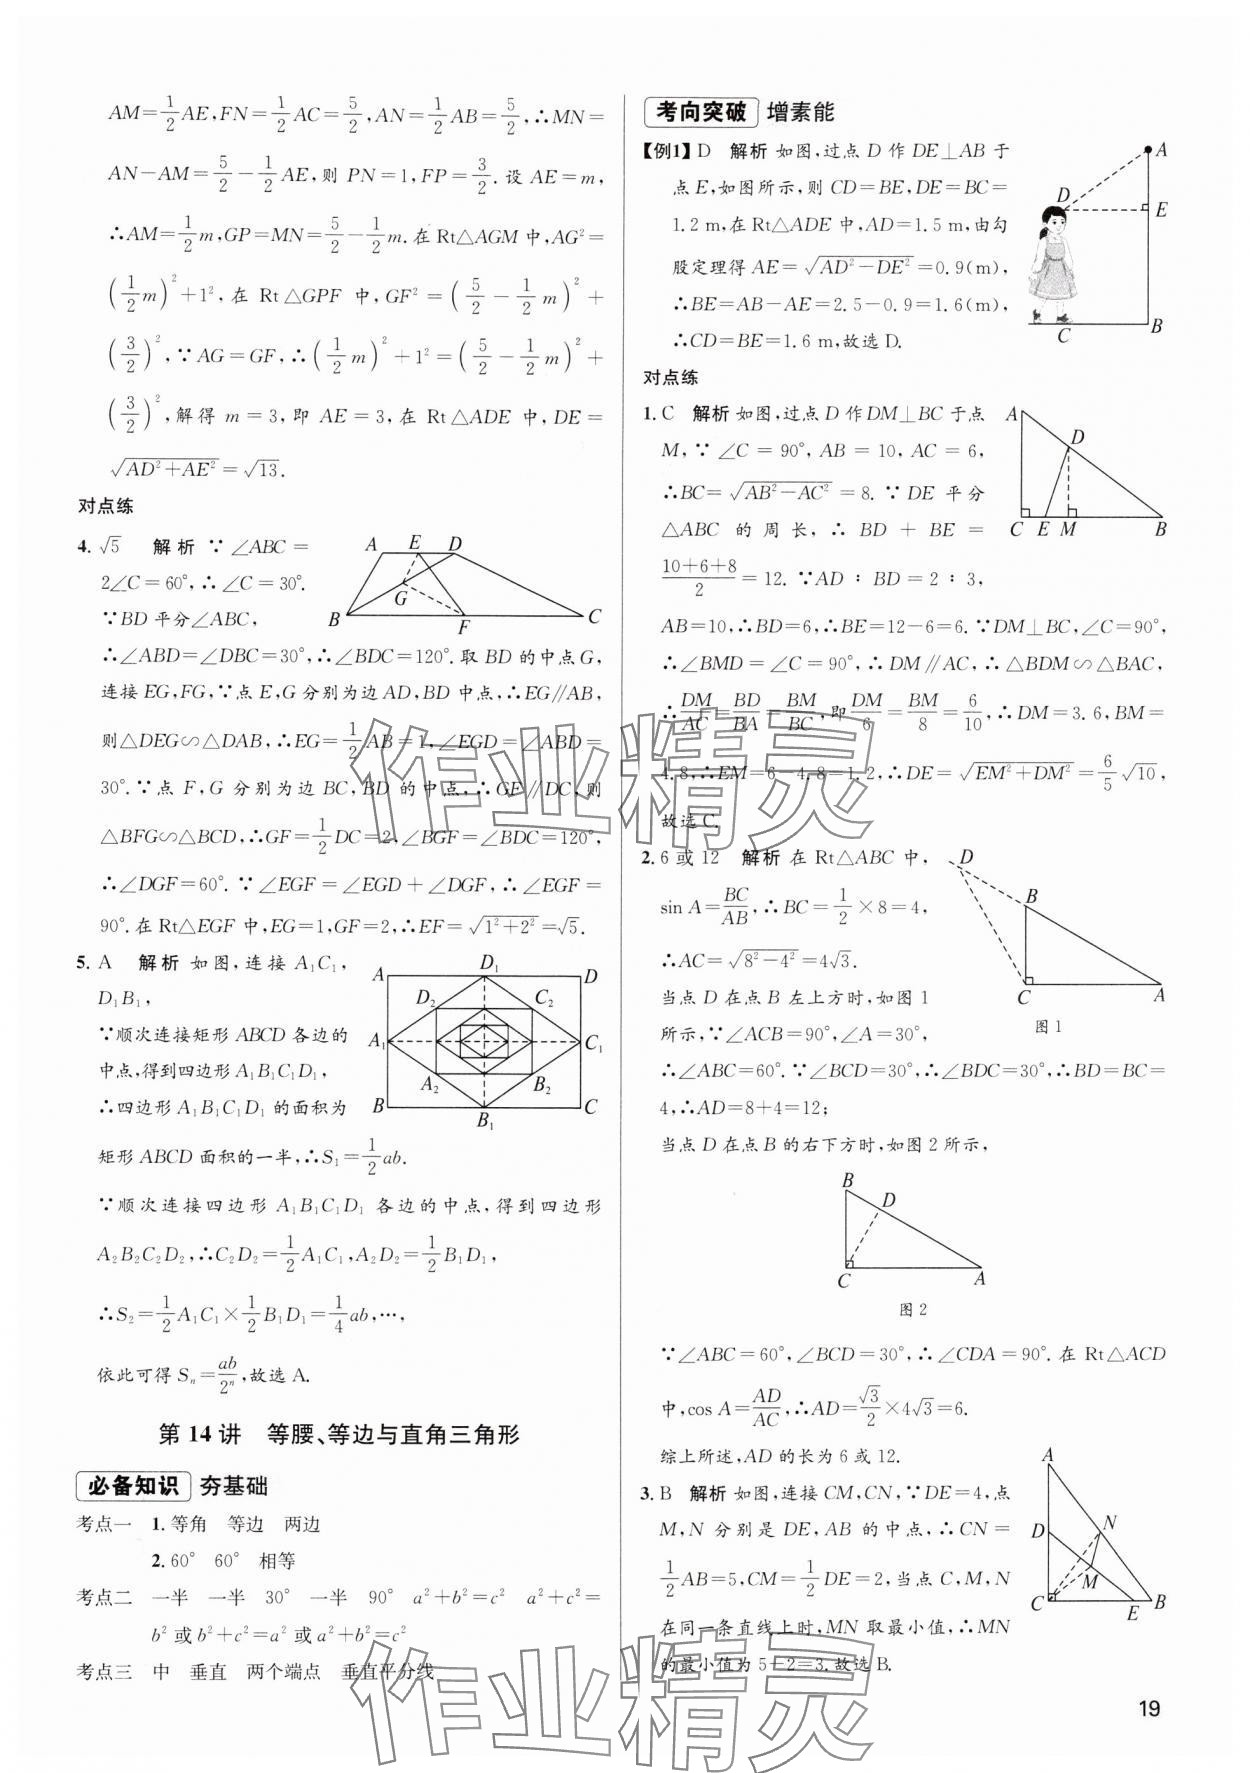 AM=1/2AE,FN=1/2AC=5/2,AN=1/2AB=5/2,∴MN=
AN−AM=5/2−1/2AE,则 PN=1,FP=3/2.设 AE=m,
∴AM=1/2m,GP=MN=5/2−1/2m.在 Rt△AGM 中,AG²=
(1/2m)²+1²,在 Rt△GPF 中,GF²=(5/2−1/2m)²+
(3/2)²,∵AG=GF,∴(1/2m)²+1²=(5/2−1/2m)²+
(3/2)²,解得 m=3,即 AE=3,在 Rt△ADE 中,DE=
√(AD²+AE²)=√13.
对点练
4.√5 解析 ∵∠ABC=
2∠C=60°,∴∠C=30°.
∵BD 平分∠ABC,
A E D
G
B F C
∴∠ABD=∠DBC=30°,∴∠BDC=120°.取 BD 的中点 G,
连接 EG,FG,∵点 E,G 分别为边 AD,BD 中点,∴EG∥AB,
则△DEG∽△DAB,∴EG=1/2AB=1,∠EGD=∠ABD=
30°.∵点 F,G 分别为边 BC,BD 的中点,∴GF∥DC,则
△BFG∽△BCD,∴GF=1/2DC=2,∠BGF=∠BDC=120°,
∴∠DGF=60°.∵∠EGF=∠EGD+∠DGF,∴∠EGF=
90°.在 Rt△EGF 中,EG=1,GF=2,∴EF=√(1²+2²)=√5.
5. A 解析 如图,连接 A₁C₁,
D₁B₁,
∵顺次连接矩形 ABCD 各边的
中点,得到四边形 A₁B₁C₁D₁,
∴四边形 A₁B₁C₁D₁ 的面积为
矩形 ABCD 面积的一半,∴S₁=1/2ab.
A D₁ D
D₂ C₂
A₁ C₁
A₂ B₂
B B₁ C
∵顺次连接四边形 A₁B₁C₁D₁ 各边的中点,得到四边形
A₂B₂C₂D₂,∴C₂D₂=1/2A₁C₁,A₂D₂=1/2B₁D₁,
∴S₂=1/2A₁C₁×1/2B₁D₁=1/4ab,…,
依此可得 Sₙ=ab/2ⁿ,故选 A.
第 14 讲 等腰、等边与直角三角形
必备知识 夯基础
考点一 1.等角 等边 两边
2.60° 60° 相等
考点二 一半 一半 30° 一半 90° a²+b²=c² a²+c²=
b² 或 b²+c²=a² 或 a²+b²=c²
考点三 中 垂直 两个端点 垂直平分线
考向突破 增素能
【例1】D 解析 如图,过点 D 作 DE⊥AB 于
点 E,如图所示,则 CD=BE,DE=BC=
1.2 m,在 Rt△ADE 中,AD=1.5 m,由勾
股定理得 AE=√(AD²−DE²)=0.9(m),
∴BE=AB−AE=2.5−0.9=1.6(m),
∴CD=BE=1.6 m,故选 D.
A
D E
C B
对点练
1. C 解析 如图,过点 D 作 DM⊥BC 于点
M,∵∠C=90°,AB=10,AC=6,
∴BC=√(AB²−AC²)=8.∵DE 平分
△ABC 的周长,∴BD+BE=
(10+6+8)/2=12.∵AD∶BD=2∶3,
A
D
C E M B
AB=10,∴BD=6,∴BE=12−6=6.∵DM⊥BC,∠C=90°,
∴∠BMD=∠C=90°,∴DM∥AC,∴△BDM∽△BAC,
∴DM/AC=BD/BA=BM/BC,即DM/6=BM/8=6/10,∴DM=3.6,BM=
4.8,∴EM=6−4.8=1.2,∴DE=√(EM²+DM²)=6/5√10,
故选 C.
2. 6 或 12 解析 在 Rt△ABC 中,
sin A=BC/AB,∴BC=1/2×8=4,
∴AC=√(8²−4²)=4√3.
当点 D 在点 B 左上方时,如图 1
所示,∵∠ACB=90°,∠A=30°,
D
B
C A
图 1
∴∠ABC=60°.∵∠BCD=30°,∴∠BDC=30°,∴BD=BC=
4,∴AD=8+4=12;
当点 D 在点 B 的右下方时,如图 2 所示,
B
D
C A
图 2
∵∠ABC=60°,∠BCD=30°,∴∠CDA=90°.在 Rt△ACD
中,cos A=AD/AC,∴AD=√3/2×4√3=6.
综上所述,AD 的长为 6 或 12.
3. B 解析 如图,连接 CM,CN,∵DE=4,点
M,N 分别是 DE,AB 的中点,∴CN=
1/2AB=5,CM=1/2DE=2,当点 C,M,N
在同一条直线上时,MN 取最小值,∴MN
的最小值为 5−2=3.故选 B.
A
D N
M
C E B
作业精灵
作业精灵
19